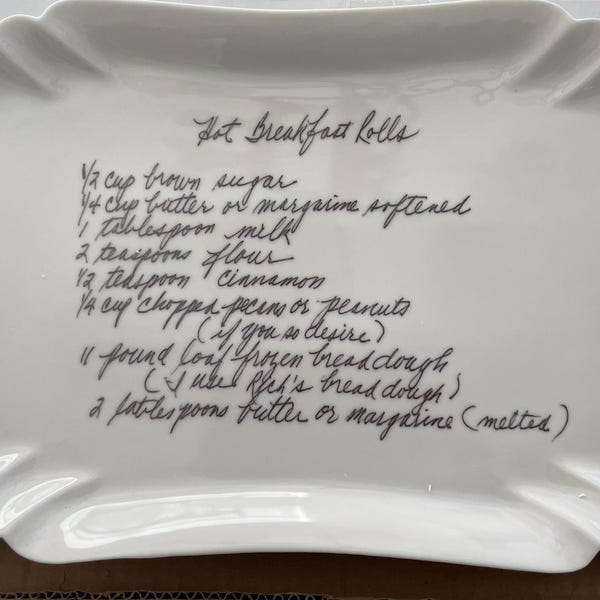 Hot Breakfast Rolls
1/2 cup brown sugar
1/4 cup butter or margarine softened
1 tablespoon milk
2 teaspoons flour
1/2 teaspoon cinnamon
1/4 cup chopped pecans or peanuts
(if you so desire)
11 pound loaf frozen bread dough
(I use Rich's bread dough)
2 tablespoons butter or margarine (melted)